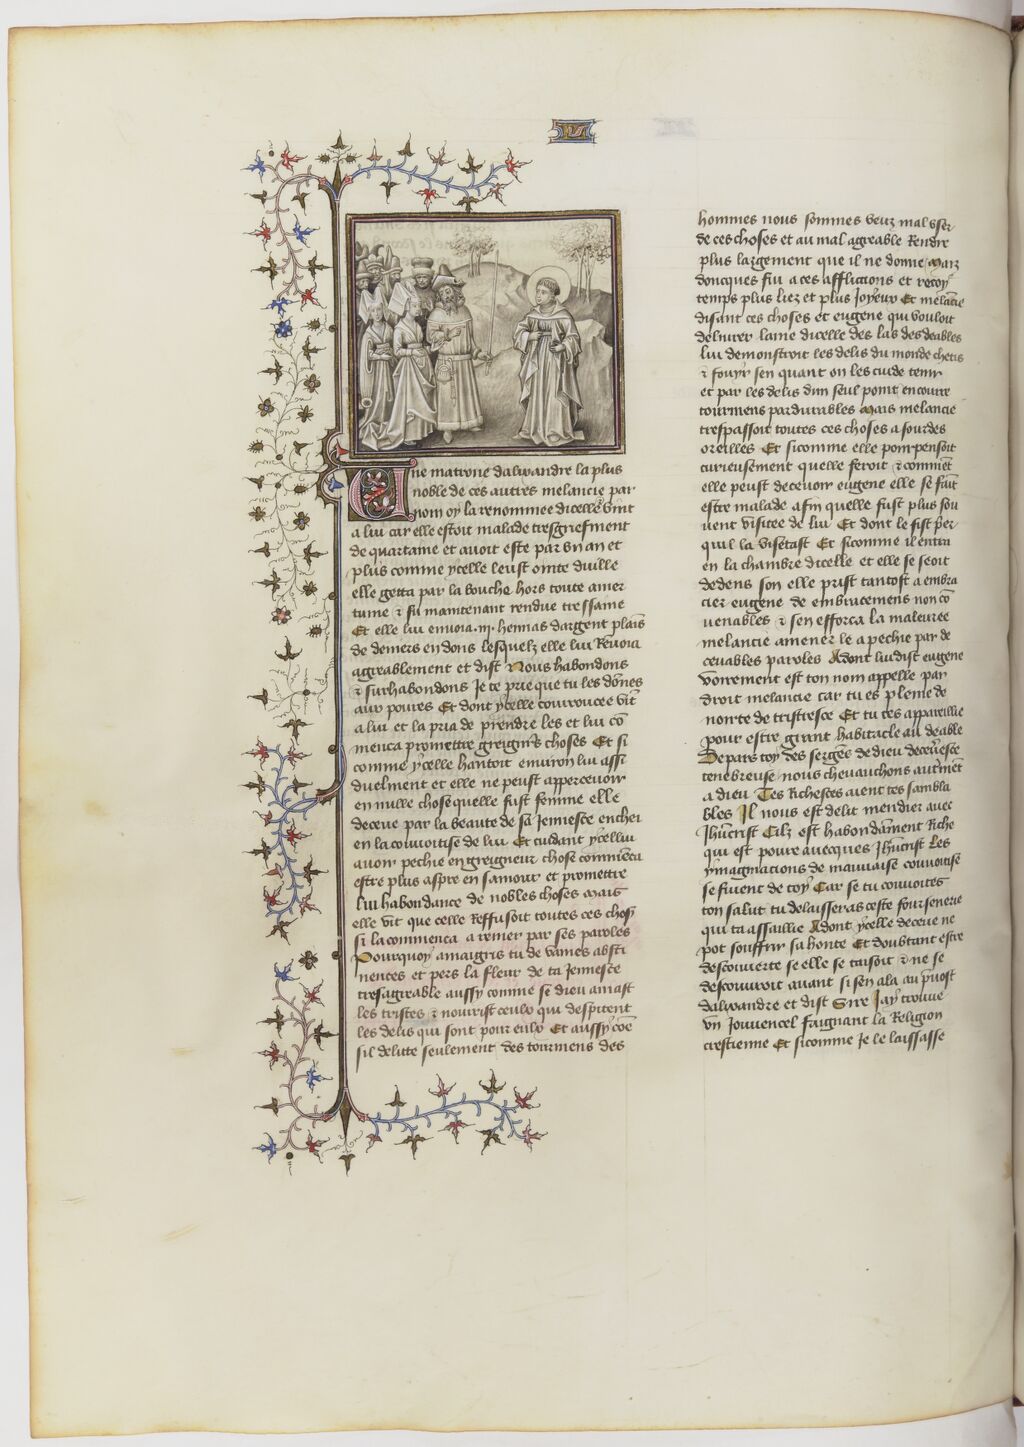 Une matrone dalixandre la plus
noble de ces autres melancie par
nom oy la renommee dicelle vint
a lui car elle estoit malade tresgriefment
de quartaine et auoit este par vn an et
plus comme ycelle leust ointe duille
elle getta par la bouche hors toute amer
tume & fu maintenant rendue tressaine
Et elle lui enuoia .iii. hennas dargent plains
de deniers en dons lesquelz elle lui Renoia
aggreablement et dist Nous habondons
& surhabondons Je te prie que tu les dones
aux poures Et dont ycelle courroucee vit
a lui et la pria de prendre les et lui co
menca promettre greignrs choses Et si
comme ycelle hantoit enuiron lui assi
duelment et elle ne peust apperceuoir
en nulle chose quelle fust femme elle
deceue par la beaute de sa Jennesce enchei
en la couuoitise de lui Et cuidant ycellui
auoir pechie en greigneur chose commenca
estre plus aspre en samour et promettre
lui habondance de nobles choses Mais
elle vit que celle Reffusoit toutes ces choses
si la commenca a remer par ses paroles
Pourquoy amaigris tu de vaines absti
nences et pers la fleur de ta Jennesce
tresagreable aussy comme se dieu amast
les tristes & nourrist ceulx qui despitent
les delis qui sont pour eulx Et aussy coe
sil delitte seulement des tourmens des
hommes nous sommes veuz mal vser
de ces choses et au mal agreable Rendre
plus largement que il ne donne Maiz
doncques fui a ces afflictions et recoy
temps plus liez et plus Joyeux Et melacie
disant ces choses et eugene qui vouloit
deliurer lame dicelle des las des deables
lui demonstroit les delis du monde chetis
& fouyr sen quant on les cuide tenir
et par les delis dun seul point encourre
tourmens pardurables Mais melancie
trespassoit toutes ces choses a sourdes
oreilles Et sicomme elle pourpensoit
curieusement quelle feroit & comment
elle peust deceuoir eugene elle se faint
estre malade afin quelle fust plus sou
uent visitee de lui Et dont le fist prier
quil la visetast Et sicomme il entra
en la chambre dicelle et elle se seoit
dedens son elle prist tantost a embra
cier eugene de embracemens non co
uenables & sen efforca la maleuree
melancie amener le a pechie par de
ceuables paroles Adont lui dist eugene
voirement est ton nom appelle par
droit melancie car tu es pleine de
noirte de tristresce Et tu tes appareillie
pour estre grant habitacle au deable
Depars toy des sergens de dieu deceueresce
tenebreuse nous cheuauchons autrment
a dieu Tes Richesces aient tes sambla
bles Il nous est delit mendier auec
Jhucrist Cilz est habondament Riche
qui est poure auecques Jhucrist Les
ymaginacions de mauuaise couuoitise
se fuient de toy Car se tu couuoites
ton salut tu delaisseras ceste foursenerie
qui ta assaillie Adont ycelle deceue ne
pot souffrir sa honte Et doubtant estre
descouuerte se elle se taisoit & ne se
descouuroit auant si sen ala au puost
dalixandre et dist Sire Jay trouue
vn Jouuencel faignant la Religion
crestienne Et sicomme Je le laissasse